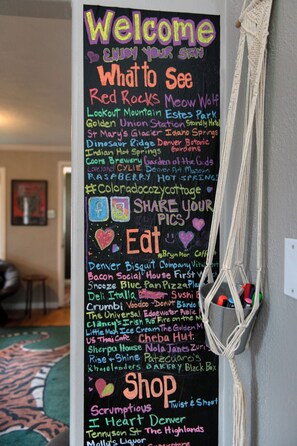 Welcome
ENJOY YOUR STAY
What to See
Red Rocks Meow Wolf
Lookout Mountain Estes Park
Golden Union Station
St Mary's Glacier Idaho Springs
Dinosaur Ridge Denver Botanic Gardens
Indian Hot Springs
Coors Brewery Garden of the Gods
Denver Art Museum
RASPBERRY HOT SPRINGS
#Coloradocozycottage
SHARE YOUR PICS
Eat
Brynton Café
Denver Biscuit Company
Bacon Social House First
Snooze Blue Pan Pizza
Deli Italia Sushi
Crumbl Voodoo Donut
The Universal Edgewater Public
Clancy's Irish Pub Fire on the
Little Man Ice Cream The Golden
US Thai Cafe Cheba Hut
Sherpa House Nola Jane
Rise & Shine Patzcuaro's
Rheinlander BAKERY Black Box
Shop
Scrumptious Twist & Shout
I Heart Denver
Tennyson St The Highlands
Molly's Liquor